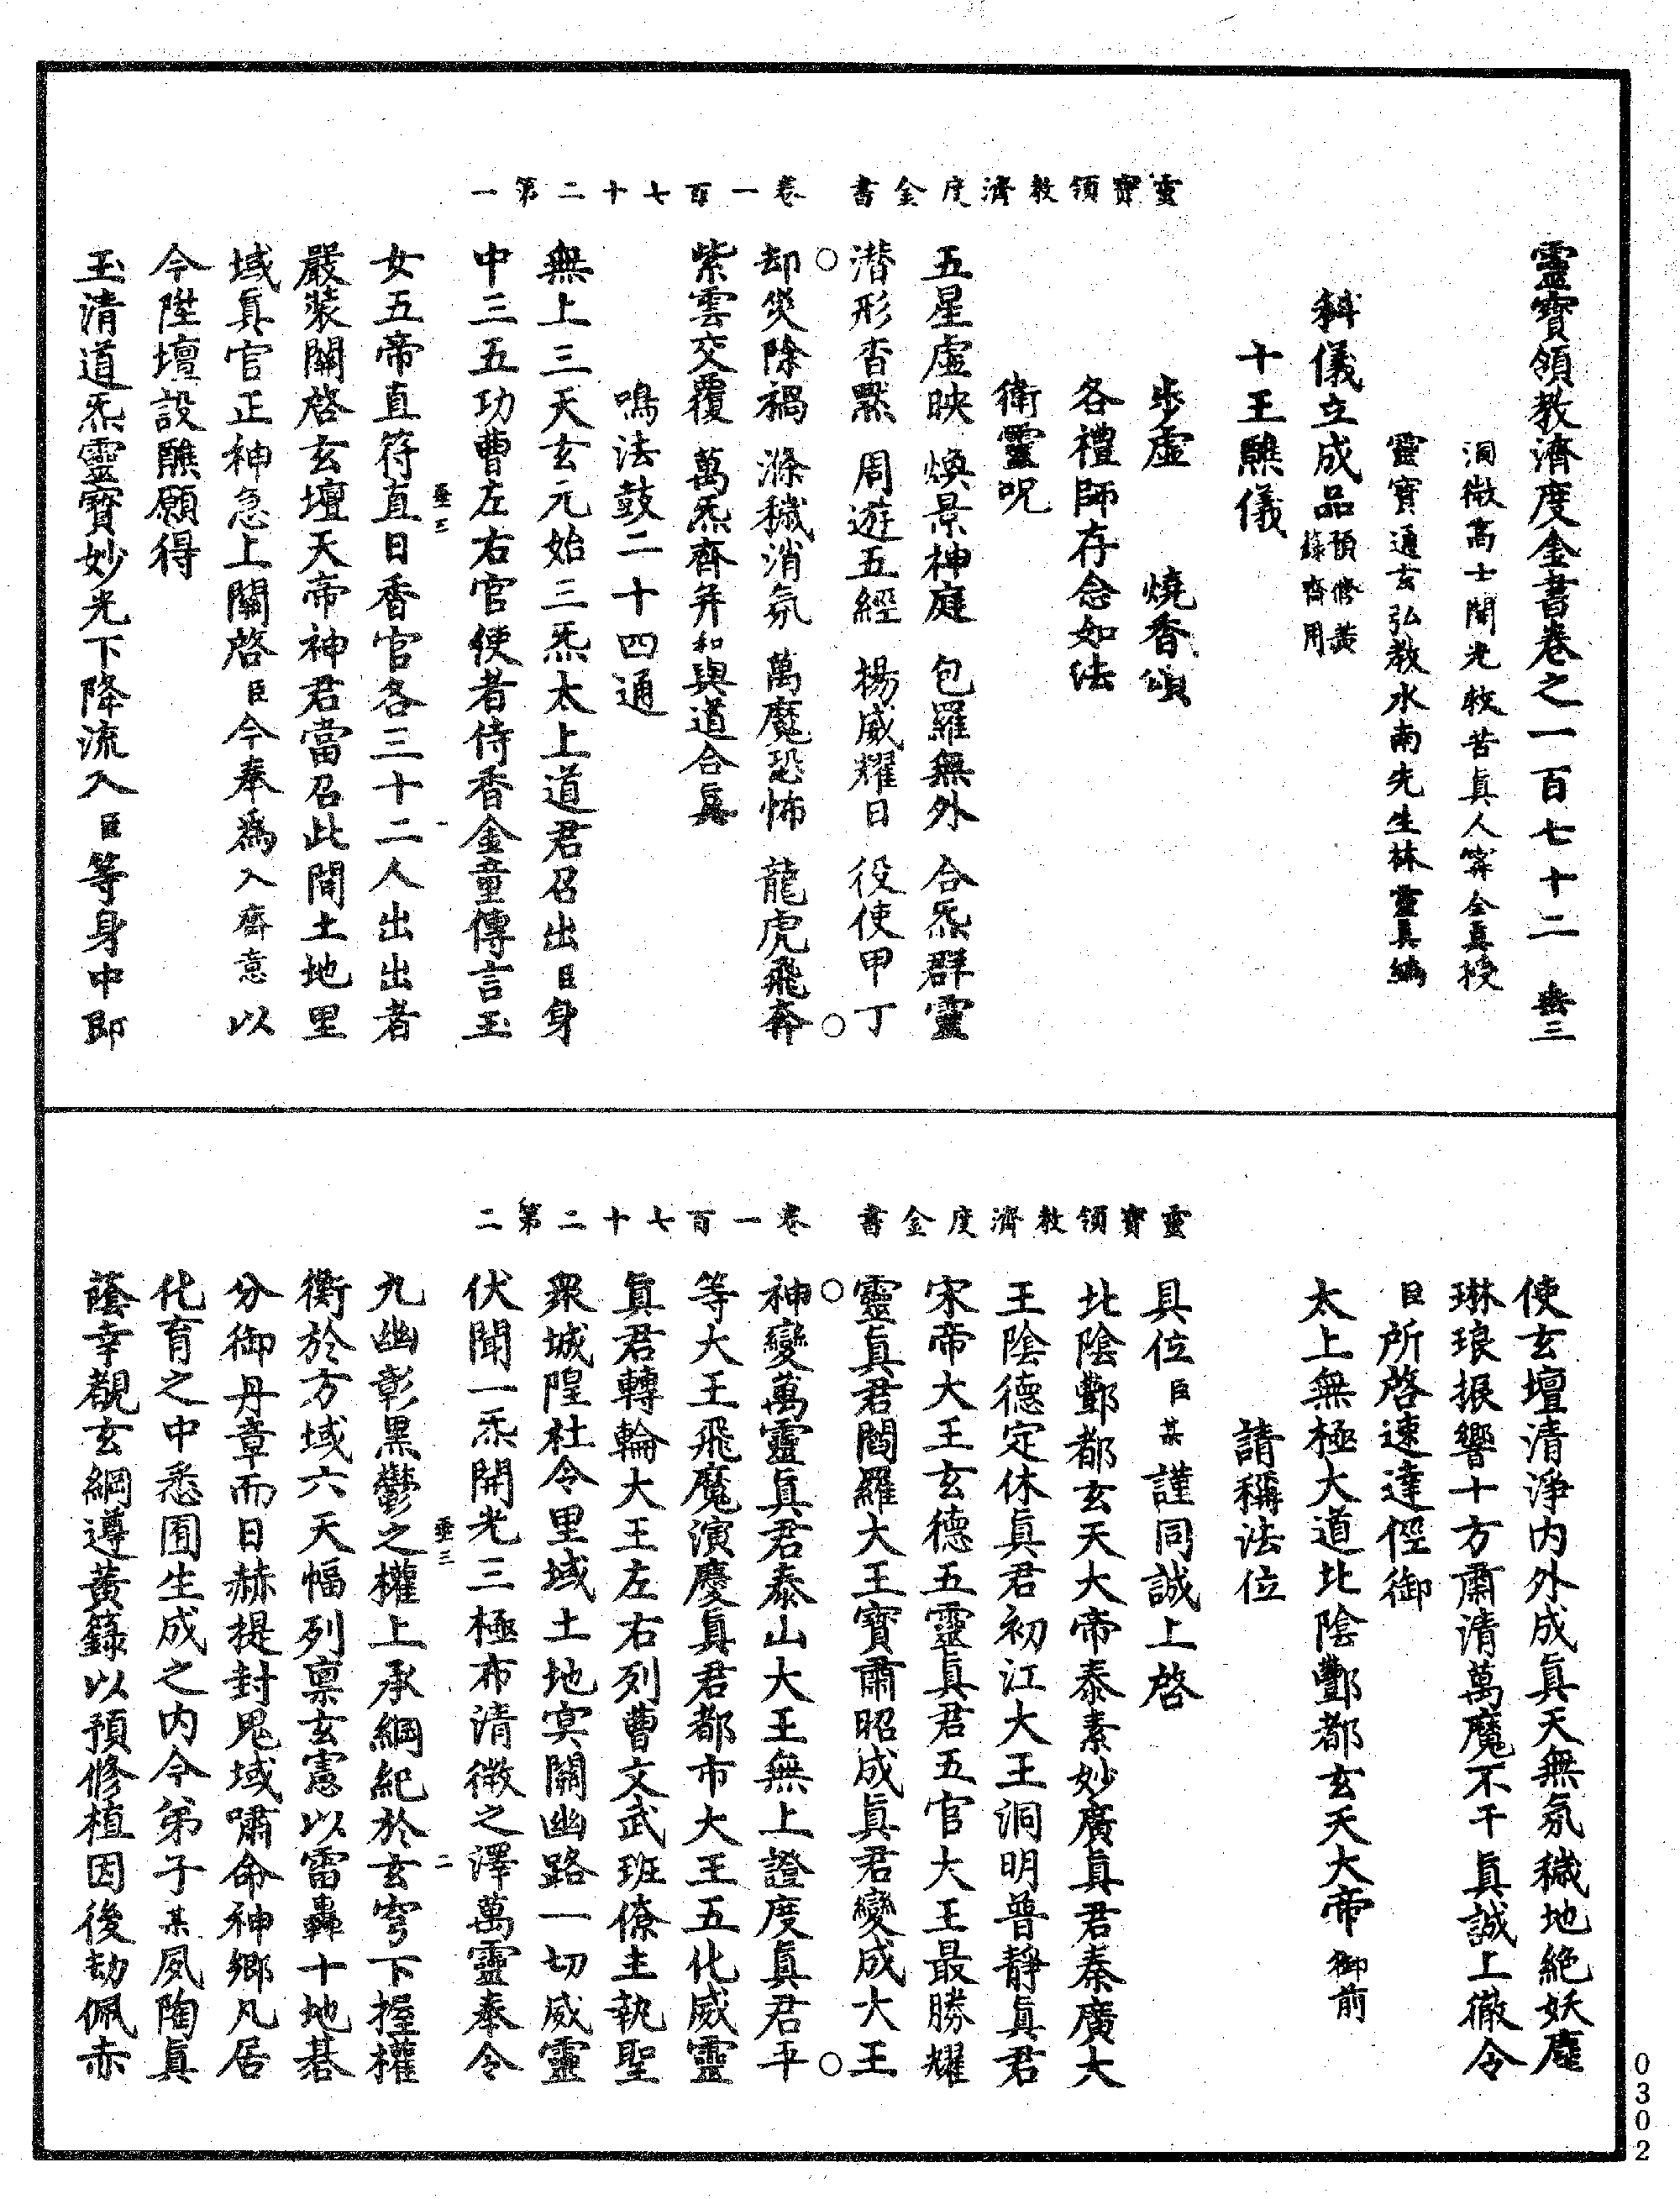 靈寶領教濟度金書　卷一百七十二第一
靈寶領教濟度金書卷之一百七十二　垂三
洞微高士開光救苦眞人甯全眞授
靈寶通玄弘教水南先生林靈眞編
科儀立成品預修黃籙齋用
十王醮儀
步虛　燒香頌
各禮師存念如法
衛靈呪
五星虛映　煥景神庭　包羅無外　合炁群靈
潛形杳默　周遊五經　揚威耀日　役使甲丁
却災除禍　滌穢消氛　萬魔恐怖　龍虎飛奔
紫雲交覆　萬炁齊并和與道合眞
鳴法鼓二十四通
無上三天玄元始三炁太上道君召出臣身
中三五功曹左右官使者侍香金童傳言玉
垂三　一
女五帝直符直日香官各三十二人出出者
嚴裝關啓玄壇天帝神君當召此間土地里
域眞官正神急上關啓臣今奉爲入齋意以
今陞壇設醮願得
玉清道炁靈寶妙光下降流入臣等身中即
靈寶領教濟度金書　卷一百七十二第二
使玄壇清淨内外成眞天無氛穢地絕妖塵
琳琅振響十方肅清萬魔不干眞誠上徹令
臣所啓速達徑御
太上無極大道北陰酆都玄天大帝御前
請稱法位
具位臣某謹同誠上啓
北陰酆都玄天大帝泰素妙廣眞君秦廣大
王陰德定休眞君初江大王洞明普靜眞君
宋帝大王玄德五靈眞君五官大王最勝耀
靈眞君閻羅大王寶肅昭成眞君變成大王
神變萬靈眞君泰山大王無上證度眞君平
等大王飛魔演慶眞君都市大王五化威靈
眞君轉輪大王左右列曹文武班僚主執聖
衆城隍社令里域土地冥關幽路一切威靈
伏聞一炁開光三極布清微之澤萬靈奉令
垂三　二
九幽彰黑鬱之權上承綱紀於玄穹下握權
衡於方域六天幅列稟玄憲以雷轟十地碁
分御丹章而日赫提封鬼域嘯命神鄉凡居
化育之中悉囿生成之内今弟子某夙陶眞
蔭幸覩玄綱遵黃籙以預修植因後劫佩赤
0302